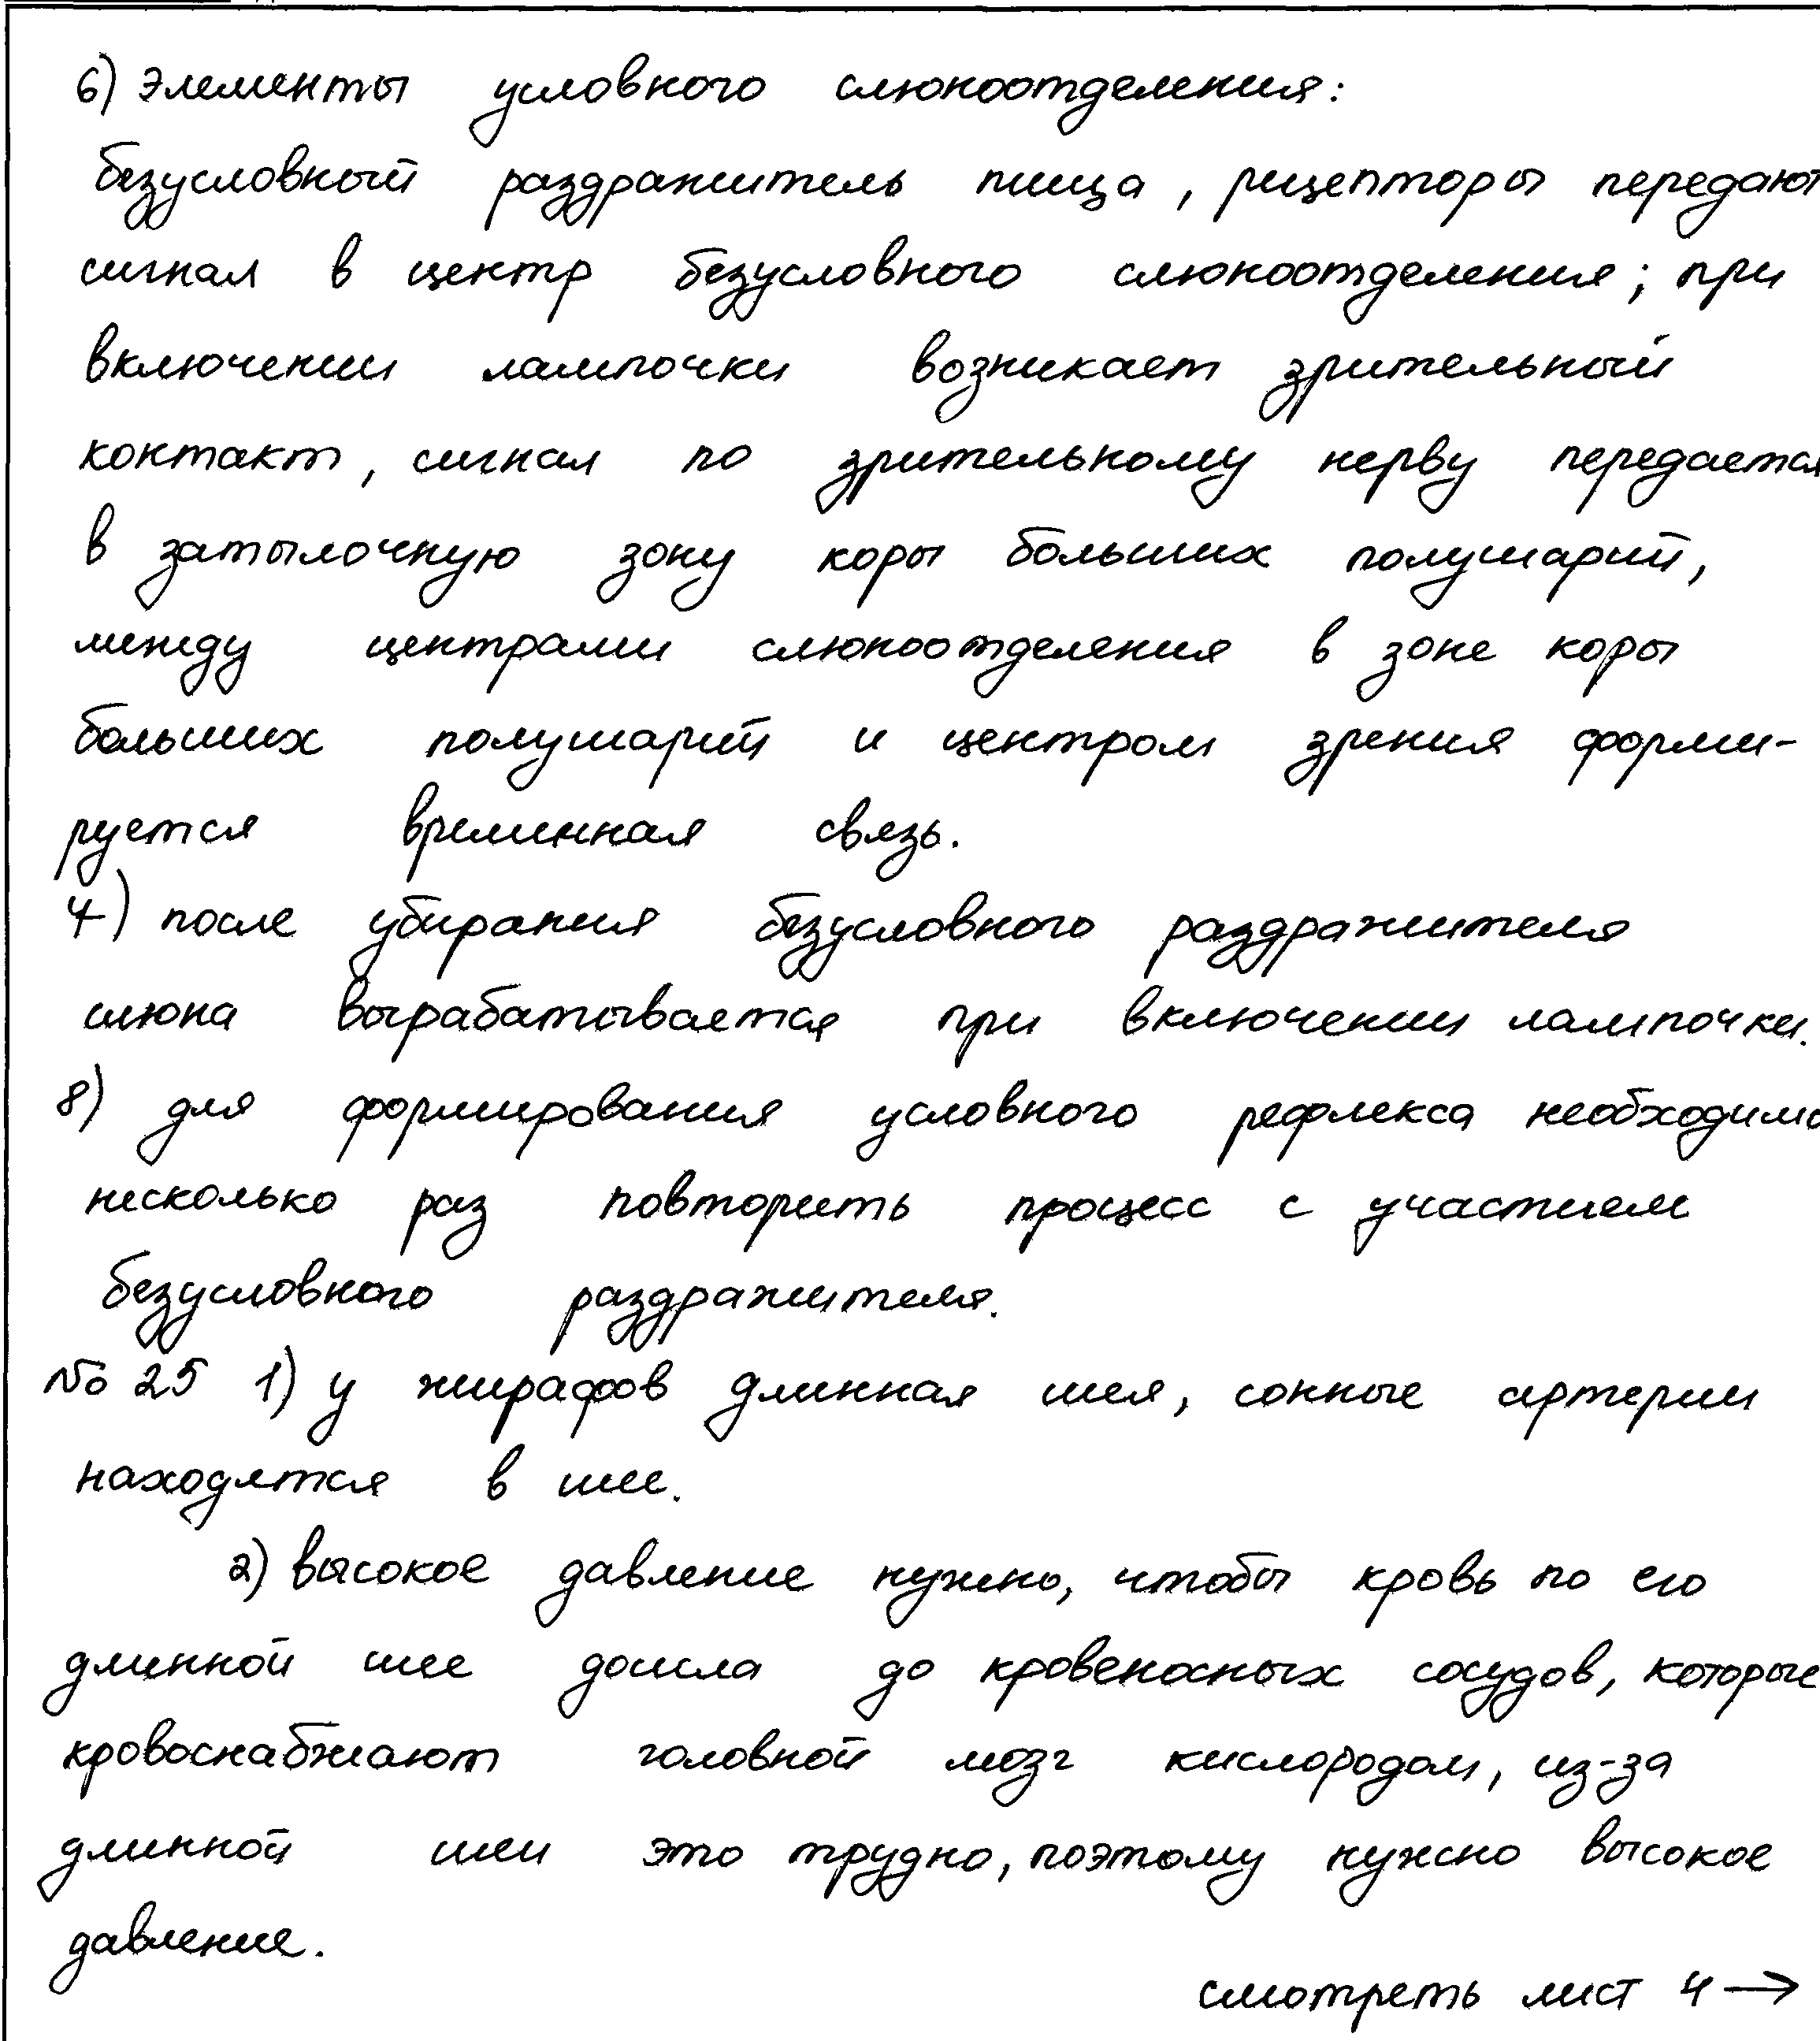 6) Элементы условного слюноотделения:
безусловный раздражитель пища, рицепторы передают
сигнал в центр безусловного слюноотделения; при
включении лампочки возникает зрительный
контакт, сигнал по зрительному нерву передается
в затылочную зону коры больших полушарий,
между центрами слюноотделения в зоне коры
больших полушарий и центром зрения форми-
руется временная связь.
7) после убирания безусловного раздражителя
слюна вырабатывается при включении лампочки.
8) для формирования условного рефлекса необходимо
несколько раз повторить процесс с участием
безусловного раздражителя.
№ 25 1) у жирафов длинная шея, сонные артерии
находятся в шее.
2) высокое давление нужно, чтобы кровь по его
длинной шее дошла до кровеносных сосудов, которые
кровоснабжают головной мозг кислородом, из-за
длинной шеи это трудно, поэтому нужно высокое
давление.
смотреть лист 4 →